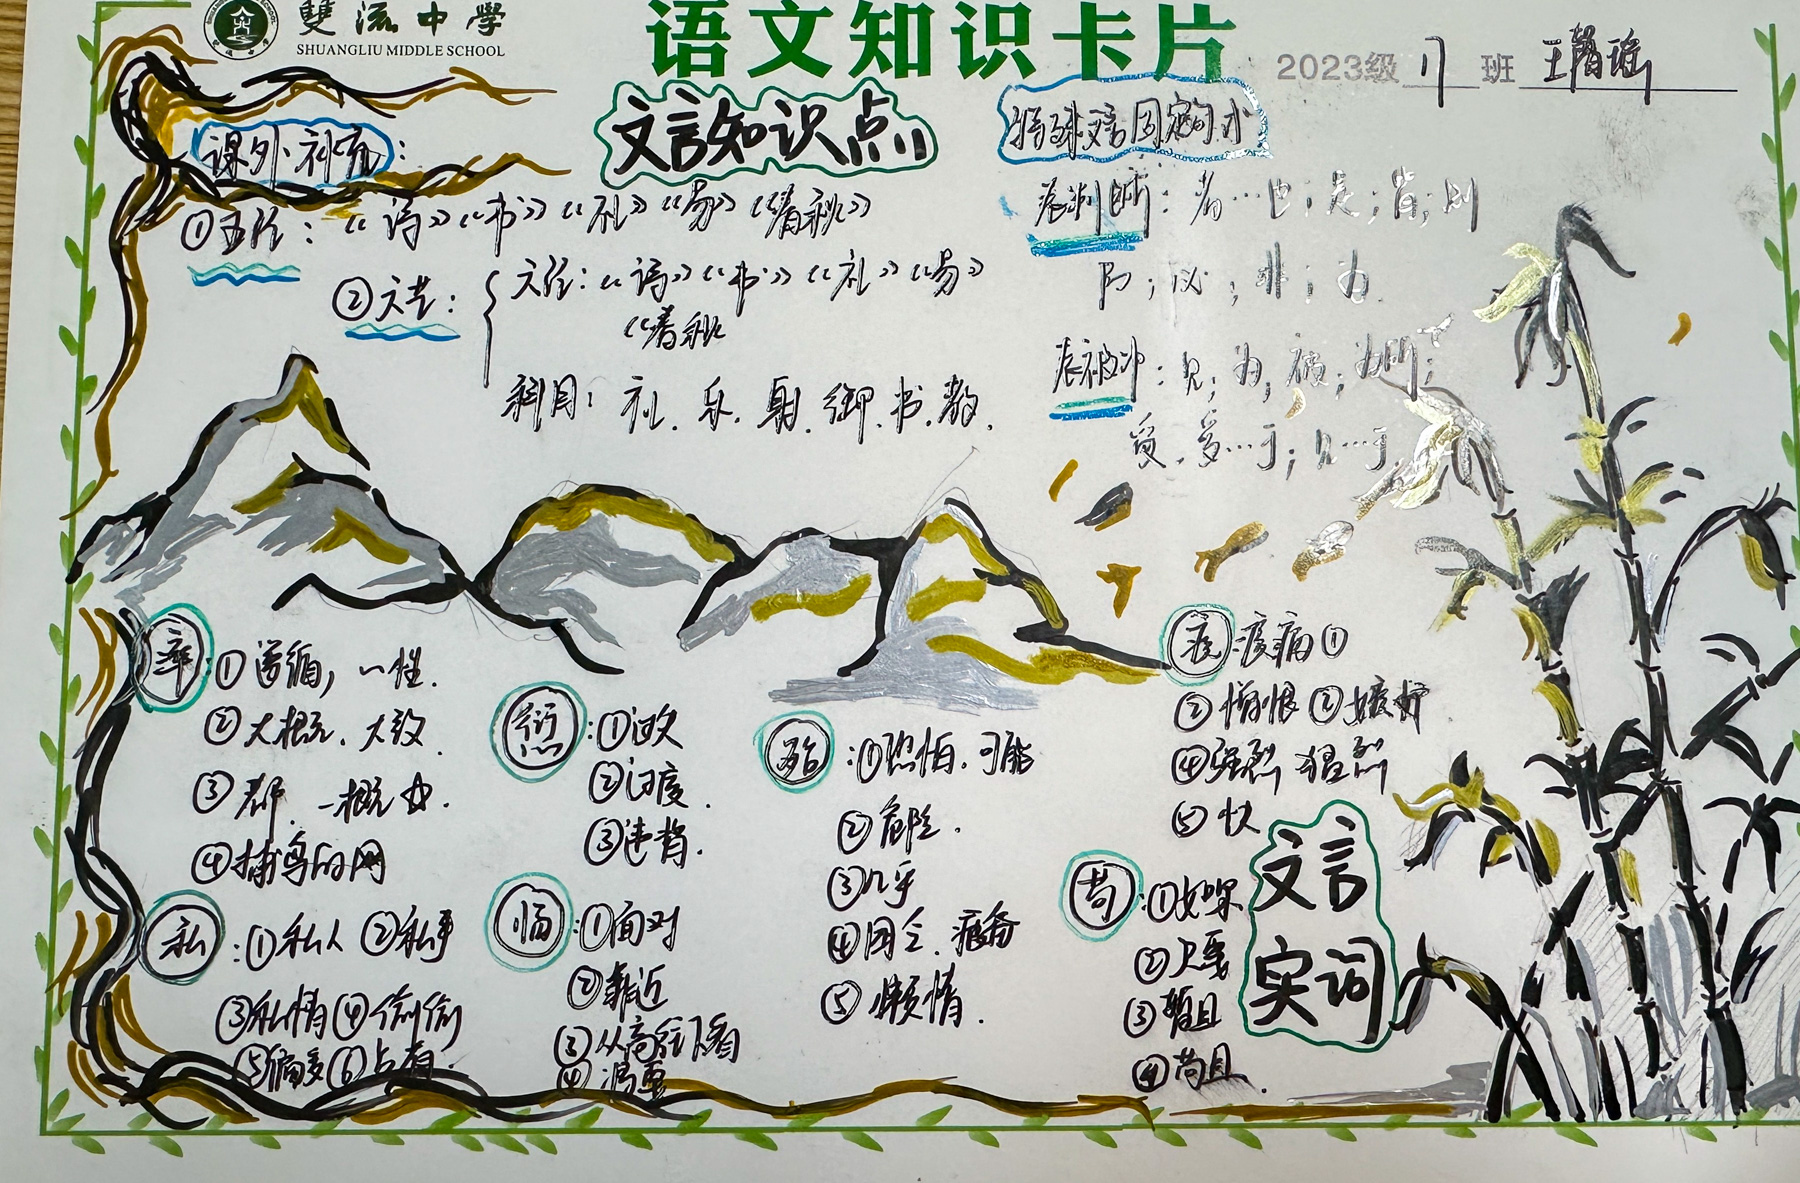 雙流中學
SHUANGLIU MIDDLE SCHOOL
语文知识卡片
2023级 17 班 王馨瑶
课外补充：
文言知识点
特殊文言固定词术
①五经：《诗》《书》《礼》《易》《春秋》
②六艺：
六经：《诗》《书》《礼》《易》
《春秋
科目：礼、乐、射、御、书、数、
表判断：者…也；是；皆；则
乃；必；非；为
表被动：见；为；被；为所；
受、受…于；见…于
率：①遵循，一性.
②大概、大致.
③都、一概
④捕鸟的网
私：①私人 ②私事
③私情 ④偷偷
⑤偏爱 ⑥占有.
愆：①过失
②过度.
③违背.
临：①面对
②靠近
③从高往下看
④
殆：①恐怕、可能
②危险.
③几乎
④困乏、疲惫
⑤懒惰.
疾：疾病①
②憎恨 ③嫉妒
④强烈 猛烈
⑤快
苟：①如果
②只要
③暂且
④苟且.
文言
实词